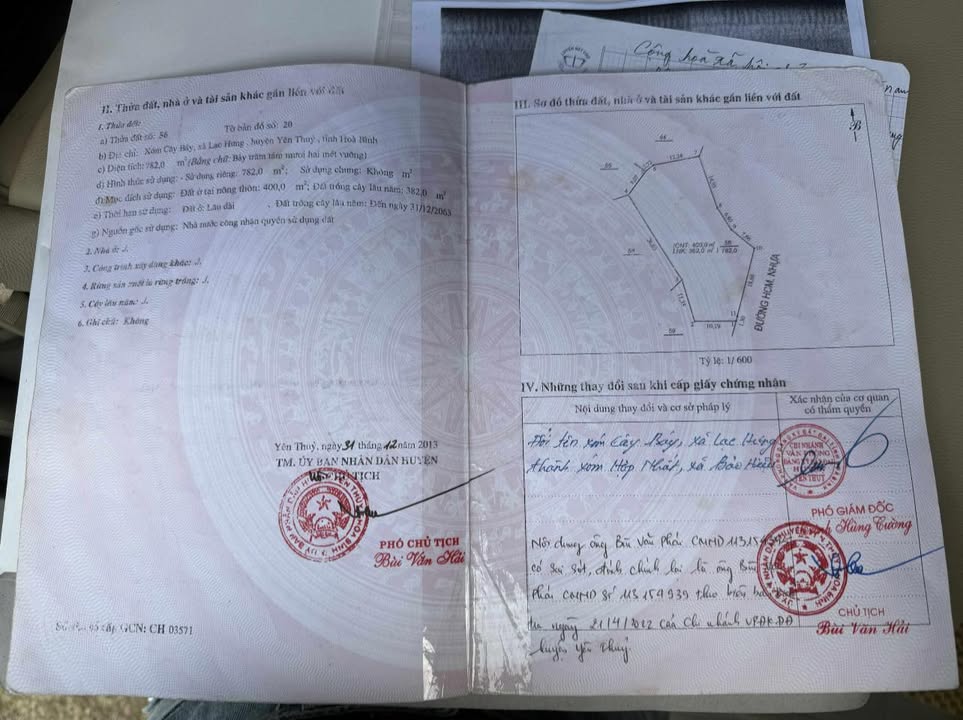 Cộng hoà xã hội
II. Thửa đất, nhà ở và tài sản khác gắn liền với đất
1. Thửa đất:
a) Thửa đất số: 56 Tờ bản đồ số: 20
b) Địa chỉ: Xóm Cây Bảy, xã Lạc Hưng, huyện Yên Thuỷ, tỉnh Hoà Bình
c) Diện tích: 782,0 m² (Bằng chữ: Bảy trăm tám mươi hai mét vuông)
d) Hình thức sử dụng: - Sử dụng riêng: 782,0 m²; Sử dụng chung: Không m²
đ) Mục đích sử dụng: Đất ở tại nông thôn: 400,0 m²; Đất trồng cây lâu năm: 382,0 m²
e) Thời hạn sử dụng: Đất ở: Lâu dài , Đất trồng cây lâu năm: Đến ngày 31/12/2063
g) Nguồn gốc sử dụng: Nhà nước công nhận quyền sử dụng đất
2. Nhà ở: ./.
3. Công trình xây dựng khác: ./.
4. Rừng sản xuất là rừng trồng: ./.
5. Cây lâu năm: ./.
6. Ghi chú: Không
Yên Thuỷ, ngày 31 tháng 12 năm 2013
TM. ỦY BAN NHÂN DÂN HUYỆN
CHỦ TỊCH
PHÓ CHỦ TỊCH
Bùi Văn Hải
Số vào sổ cấp GCN: CH 03571
III. Sơ đồ thửa đất, nhà ở và tài sản khác gắn liền với đất
B
ĐƯỜNG HCM, NHỰA
56
782,0
10,19
Tỷ lệ: 1/600
IV. Những thay đổi sau khi cấp giấy chứng nhận
Nội dung thay đổi và cơ sở pháp lý
Xác nhận của cơ quan có thẩm quyền
Đổi tên xóm Cây Bảy, xã Lạc Hưng
thành xóm Hợp Nhất, xã Bảo Hiệu
CHI NHÁNH
VĂN PHÒNG
HUYỆN
YÊN THUỶ
PHÓ GIÁM ĐỐC
Hùng Cường
Nội dung ông Bùi Văn Phấn CMND
có sai sót, đính chính lại là ông Bùi
CMND số 113154939 theo
ngày 21/4/2022 của Chi nhánh VPĐKĐĐ
huyện Yên Thuỷ.
CHỦ TỊCH
Bùi Văn Hải